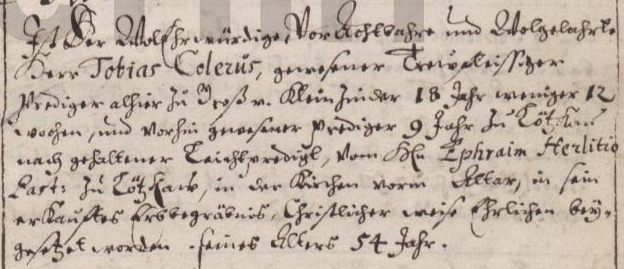 Ist Der WolEhrwürdige, Vor Achtbahre und Wolgelahrte
Herr Tobias Colerus, gewesener Trewfleissiger
Prediger alhier zu Groß v. Klein 18 Jahr weniger 12
wochen, und vorhin gewesener Prediger 9 Jahr zu
nach gehaltener Leichpredigt, vom Hn Ephraim Herlitio
Past: zu in der Kirchen vorm Altar, in sein
erkauftes Erbbegräbnis, Christlicher weise Ehrlichen bey-
gesetzet worden. seines Alters 54 Jahr.